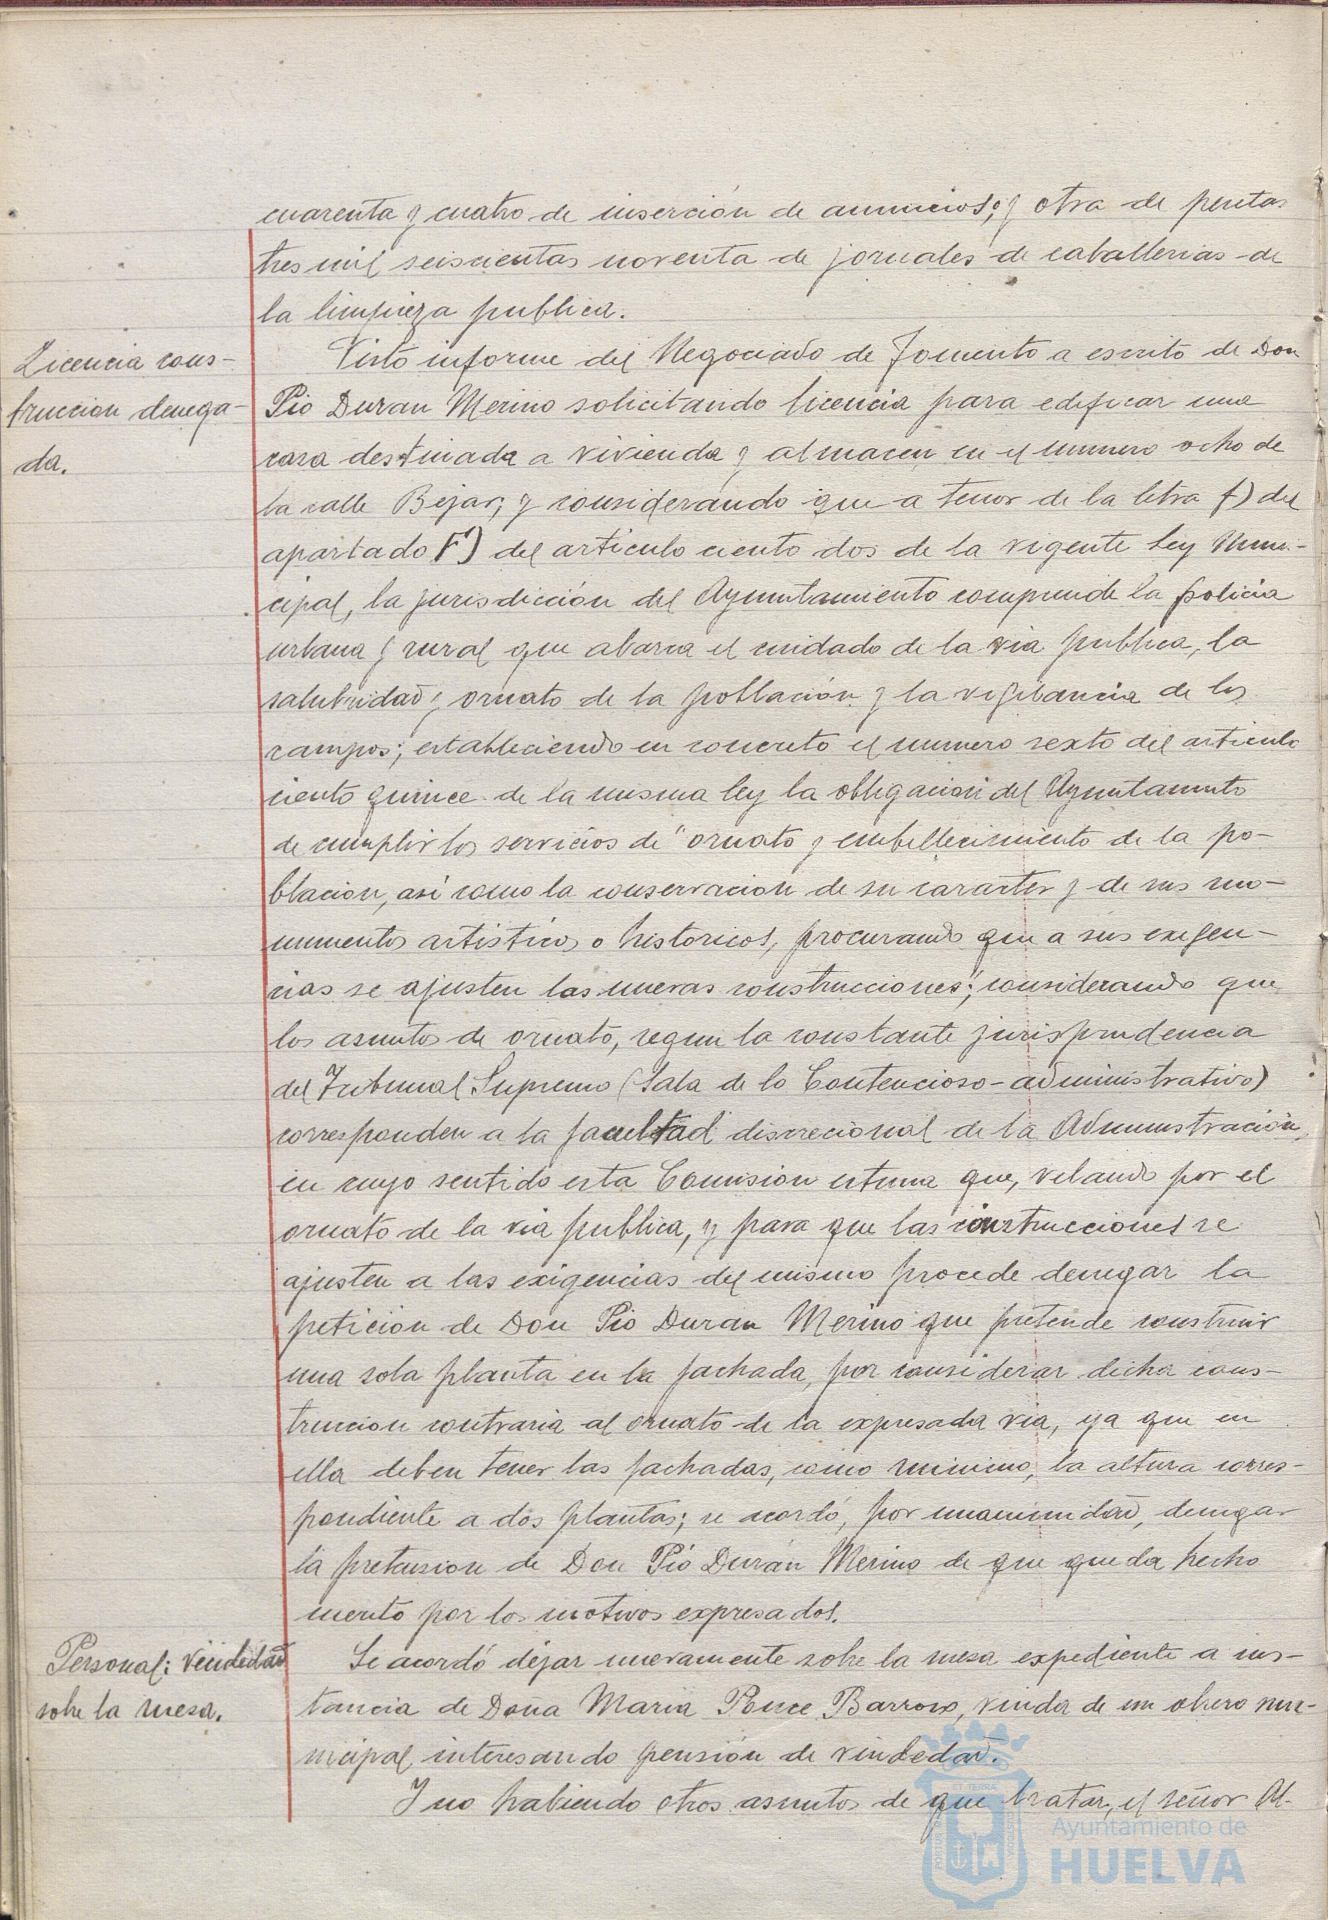 cuarenta y cuatro de inserción de anuncios; y otra de pesetas
tres mil seiscientas noventa de jornales de caballerias de
la limpieza publica.
Licencia cons-
truccion denega-
da.
Visto informe del Negociado de Fomento a escrito de Don
Pio Duran Merino solicitando licencia para edificar una
casa destinada a vivienda y almacen en el numero ocho de
la calle Bejar; y considerando que a tenor de la letra f) del
apartado F) del articulo ciento dos de la vigente Ley Muni-
cipal, la jurisdicción del Ayuntamiento comprende la policia
urbana y rural que abarca el cuidado de la via publica, la
salubridad y ornato de la población y la vigilancia de los
campos; estableciendo en concreto el numero sexto del articulo
ciento quince de la misma ley la obligación del Ayuntamiento
de cumplir los servicios de "ornato y embellecimiento de la po-
blacion, asi como la conservacion de su caracter y de sus mo-
numentos artisticos o historicos, procurando que a sus exigen-
cias se ajusten las nuevas construcciones"; considerando que
los asuntos de ornato, segun la constante jurisprudencia
del Tribunal Supremo (Sala de lo Contencioso-administrativo)
corresponden a la facultad discrecional de la Administración,
en cuyo sentido esta Comision estima que, velando por el
ornato de la via publica, y para que las construcciones se
ajusten a las exigencias del mismo procede denegar la
peticion de Don Pio Duran Merino que pretende construir
una sola planta en la fachada, por considerar dicha cons-
truccion contraria al ornato de la expresada via, ya que en
ella deben tener las fachadas, como minimo, la altura corres-
pondiente a dos plantas; se acordó, por unanimidad, denegar
la pretension de Don Pió Durán Merino de que queda hecho
merito por los motivos expresados.
Personal: viudedad
sobre la mesa.
Se acordó dejar nuevamente sobre la mesa expediente a ins-
tancia de Doña Maria Ponce Barroso, viuda de un obrero mu-
nicipal, interesando pensión de viudedad.
Y no habiendo otros asuntos de que tratar, el señor Al-
Ayuntamiento de
HUELVA